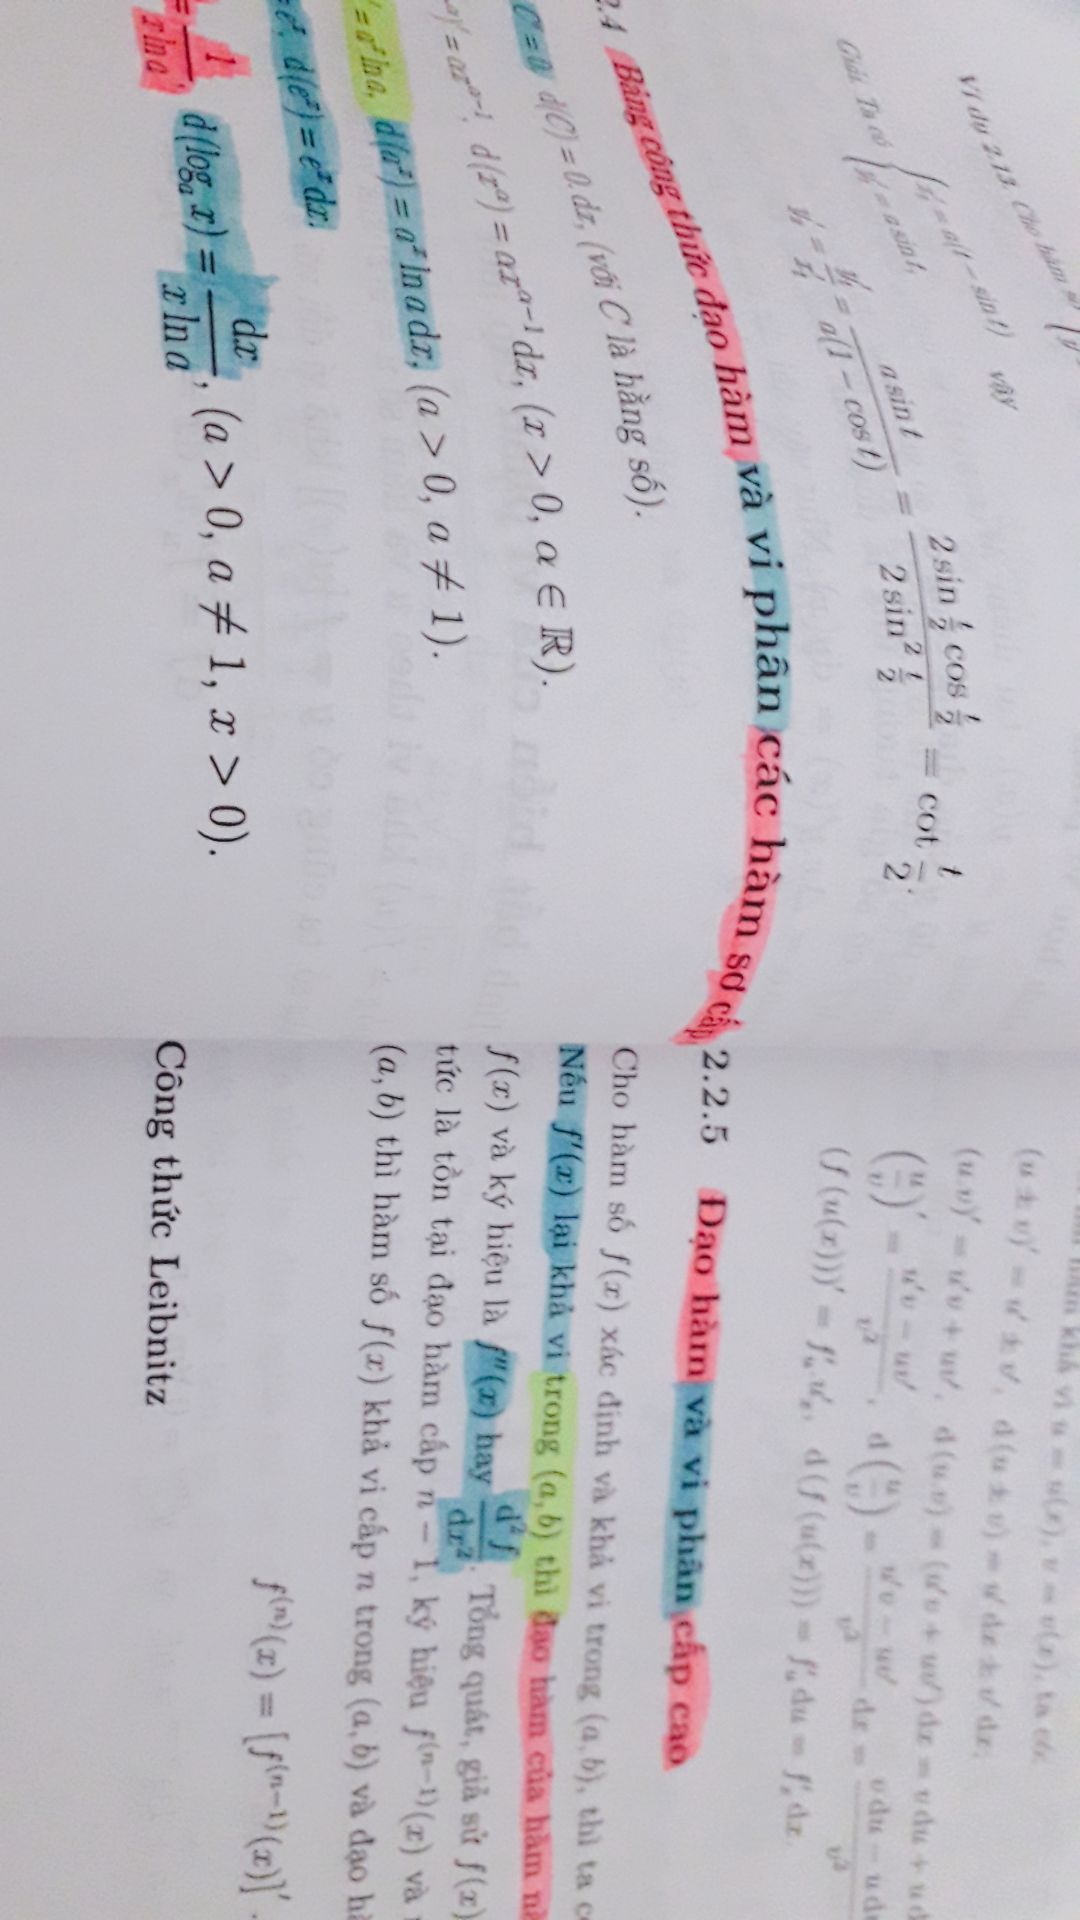 Ví dụ 2.13. Cho hàm số
Giải. Ta có { x′ₜ = a(t − sin t) vậy
y′ₜ = a sin t,
y′ₓ = y′ₜ/x′ₜ = a sin t / a(1 − cos t) = 2 sin t/2 cos t/2 / 2 sin² t/2 = cot t/2.
2.4 Bảng công thức đạo hàm và vi phân các hàm sơ cấp
C′ = 0 d(C) = 0.dx, (với C là hằng số).
′ = αx^(α−1), d(x^α) = αx^(α−1) dx, (x > 0, α ∈ ℝ).
′ = aˣ ln a, d(aˣ) = aˣ ln a dx, (a > 0, a ≠ 1).
= eˣ, d(eˣ) = eˣ dx.
= 1/(x ln a), d(logₐ x) = dx/(x ln a), (a > 0, a ≠ 1, x > 0).
hàm khả vi u = u(x), v = v(x), ta có
(u ± v)′ = u′ ± v′, d(u ± v) = u′dx ± v′dx;
(u.v)′ = u′v + uv′, d(u.v) = (u′v + uv′)dx = vdu + ud
(u/v)′ = (u′v − uv′)/v², d(u/v) = (u′v − uv′)/v² dx = (vdu − ud)/v²
(f(u(x)))′ = f′ᵤ.u′ₓ, d(f(u(x))) = f′ᵤdu = f′ₓdx.
2.2.5 Đạo hàm và vi phân cấp cao
Cho hàm số f(x) xác định và khả vi trong (a, b), thì ta
Nếu f′(x) lại khả vi trong (a, b) thì đạo hàm của hàm
f(x) và ký hiệu là f″(x) hay d²f/dx². Tổng quát, giả sử f(x)
tức là tồn tại đạo hàm cấp n − 1, ký hiệu f⁽ⁿ⁻¹⁾(x) và
(a, b) thì hàm số f(x) khả vi cấp n trong (a, b) và đạo
f⁽ⁿ⁾(x) = [f⁽ⁿ⁻¹⁾(x)]′.
Công thức Leibnitz